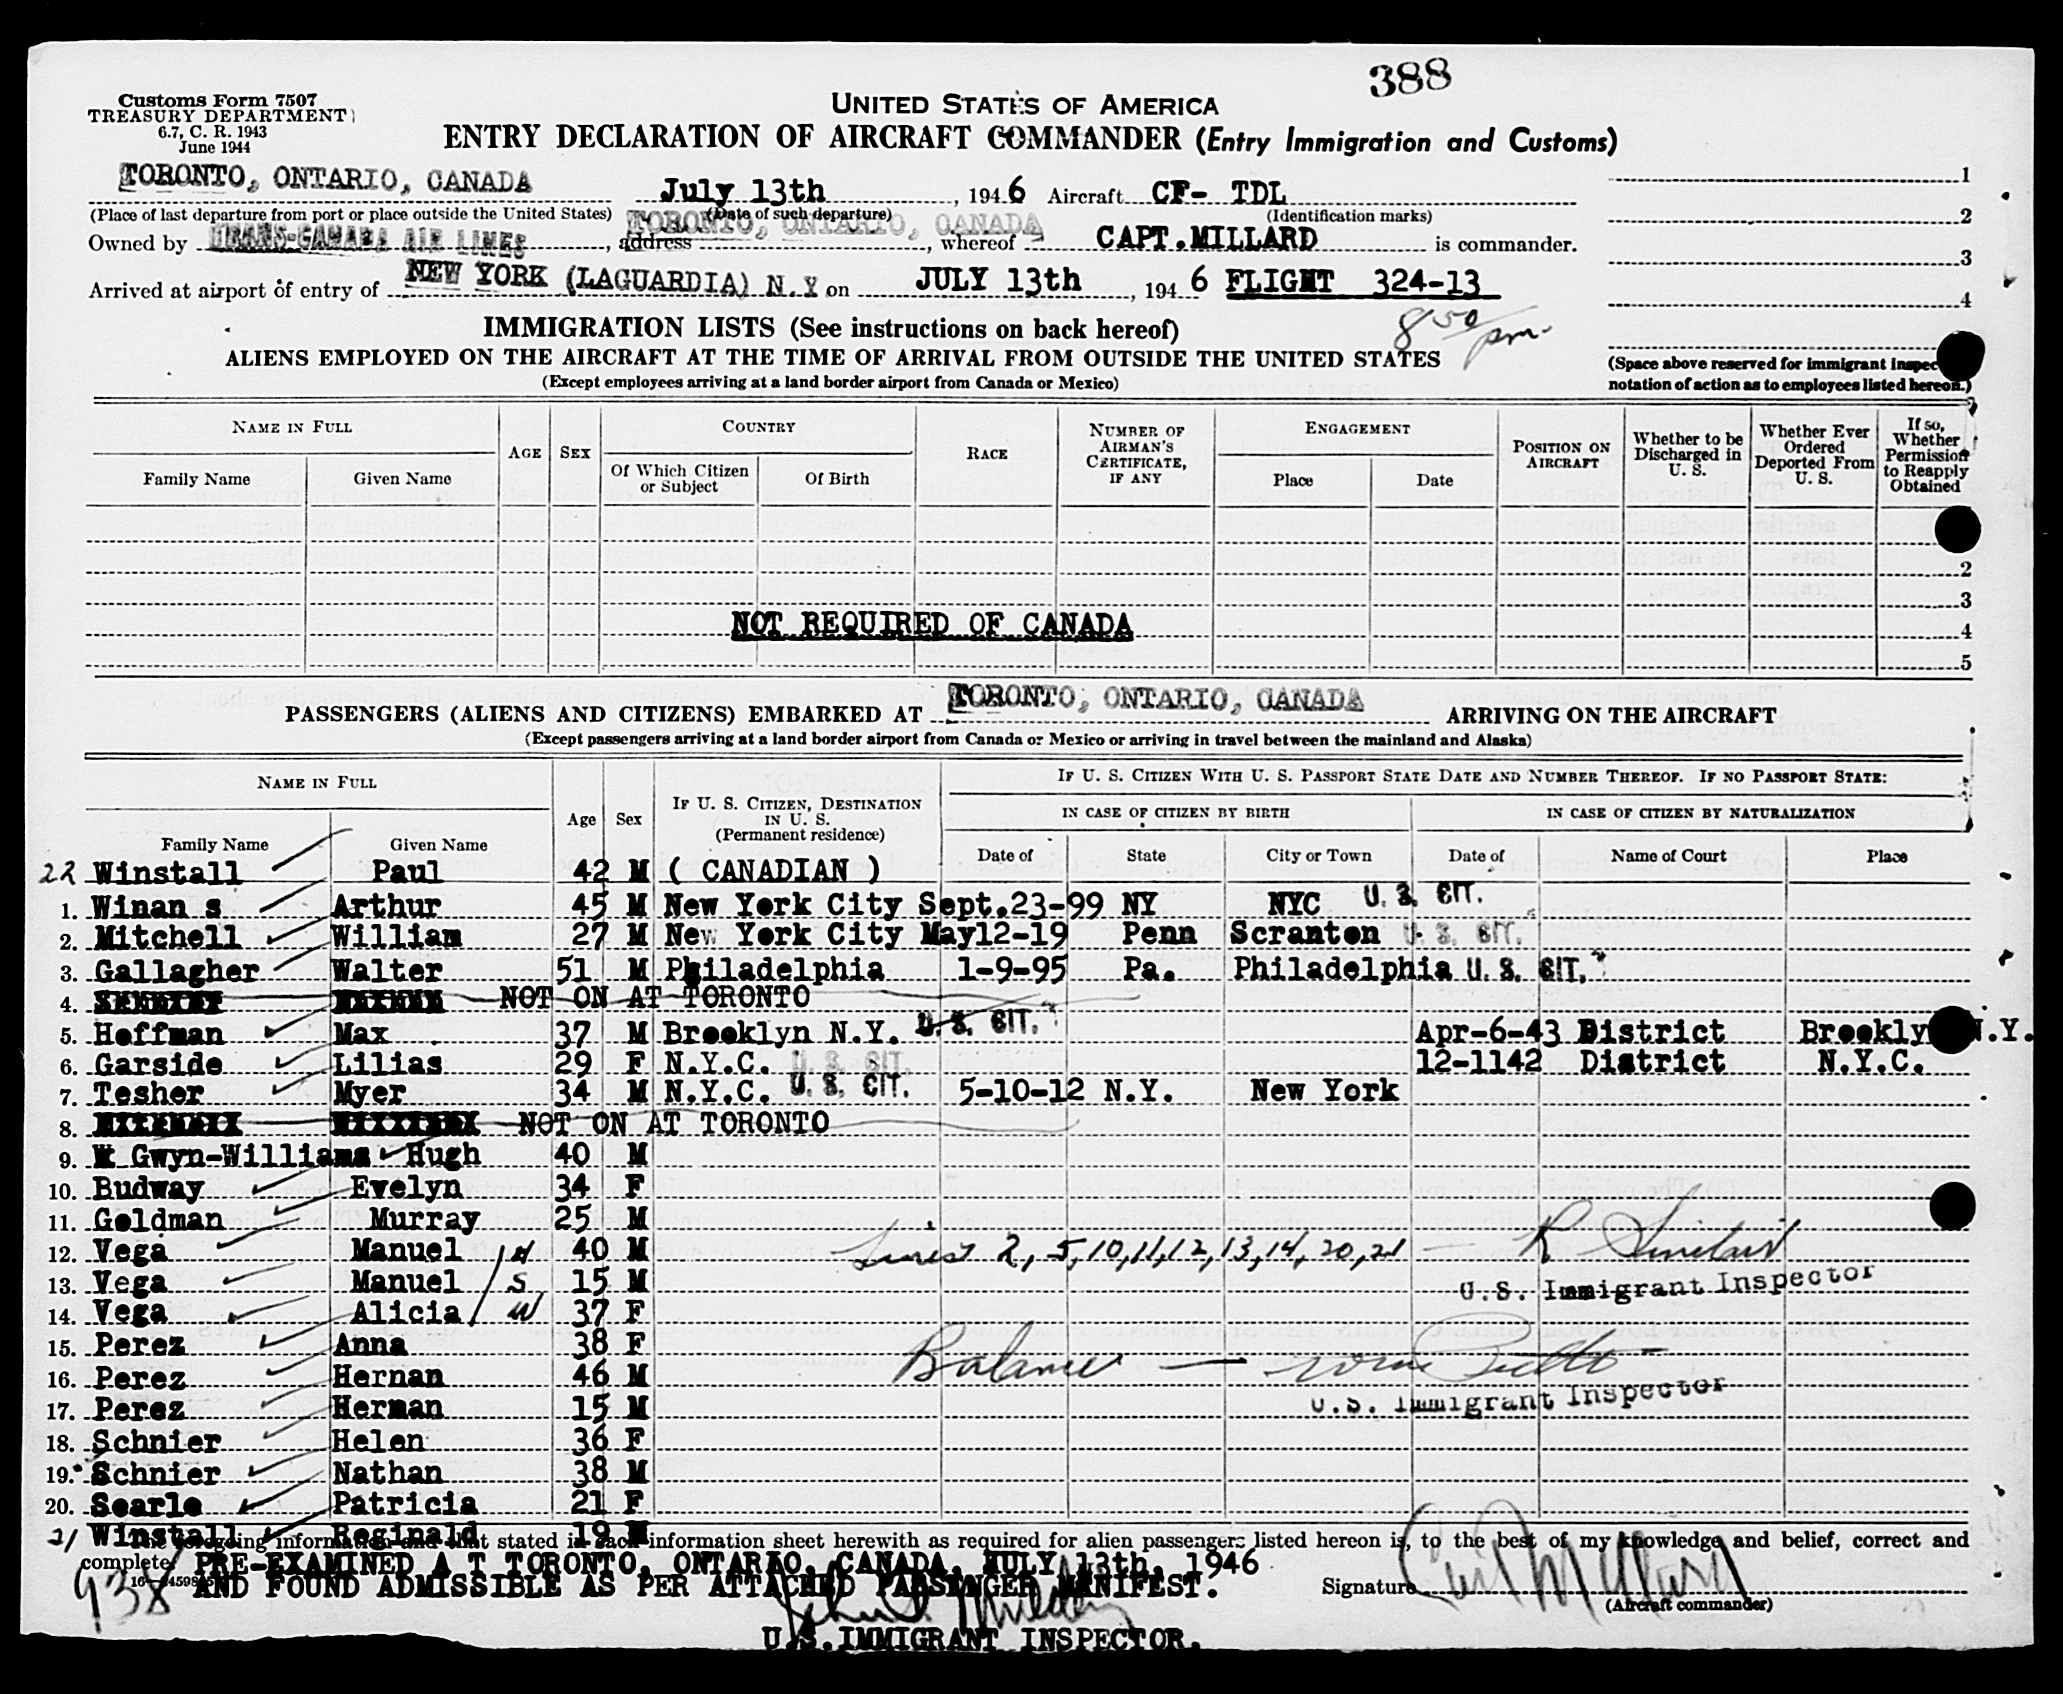 388
Customs Form 7507
TREASURY DEPARTMENT
6.7, C. R. 1943
June 1944
UNITED STATES OF AMERICA
ENTRY DECLARATION OF AIRCRAFT COMMANDER (Entry Immigration and Customs)
TORONTO, ONTARIO, CANADA July 13th, 1946 Aircraft CF- TDL
(Place of last departure from port or place outside the United States) (Date of such departure) (Identification marks)
Owned by TRANS-CANADA AIR LINES, address TORONTO, ONTARIO, CANADA, whereof CAPT.MILLARD is commander.
Arrived at airport of entry of NEW YORK (LAGUARDIA) N.Y on JULY 13th, 1946 FLIGHT 324-13
1
2
3
4
IMMIGRATION LISTS (See instructions on back hereof)
8 50 pm
ALIENS EMPLOYED ON THE AIRCRAFT AT THE TIME OF ARRIVAL FROM OUTSIDE THE UNITED STATES
(Except employees arriving at a land border airport from Canada or Mexico)
(Space above reserved for immigrant inspec
notation of action as to employees listed hereon.)
NAME IN FULL
Family Name Given Name
AGE SEX
COUNTRY
Of Which Citizen or Subject Of Birth
RACE
NUMBER OF AIRMAN'S CERTIFICATE, IF ANY
ENGAGEMENT
Place Date
POSITION ON AIRCRAFT
Whether to be Discharged in U. S.
Whether Ever Ordered Deported From U. S.
If so, Whether Permission to Reapply Obtained
2
3
NOT REQUIRED OF CANADA
4
5
PASSENGERS (ALIENS AND CITIZENS) EMBARKED AT TORONTO, ONTARIO, CANADA ARRIVING ON THE AIRCRAFT
(Except passengers arriving at a land border airport from Canada or Mexico or arriving in travel between the mainland and Alaska)
NAME IN FULL
Family Name Given Name
Age Sex
IF U. S. CITIZEN, DESTINATION IN U. S.
(Permanent residence)
IF U. S. CITIZEN WITH U. S. PASSPORT STATE DATE AND NUMBER THEREOF. IF NO PASSPORT STATE:
IN CASE OF CITIZEN BY BIRTH IN CASE OF CITIZEN BY NATURALIZATION
Date of State City or Town Date of Name of Court Place
22 Winstall Paul 42 M ( CANADIAN )
1. Winan s Arthur 45 M New York City Sept.23-99 NY NYC U. S. CIT.
2. Mitchell William 27 M New York City May12-19 Penn Scranton U. S. CIT.
3. Gallagher Walter 51 M Philadelphia 1-9-95 Pa. Philadelphia U. S. CIT.
4. NOT ON AT TORONTO
5. Hoffman Max 37 M Brooklyn N.Y. U. S. CIT. Apr-6-43 District Brookly N.Y.
6. Garside Lilias 29 F N.Y.C. U. S. CIT. 12-1142 District N.Y.C.
7. Tesher Myer 34 M N.Y.C. U. S. CIT. 5-10-12 N.Y. New York
8. NOT ON AT TORONTO
9. Gwyn-Williams Hugh 40 M
10. Budway Evelyn 34 F
11. Goldman Murray 25 M
12. Vega Manuel H 40 M Lines 2, 5, 10, 11, 12, 13, 14, 20, 21 - R Sinclair
13. Vega Manuel S 15 M U.S. Immigrant Inspector
14. Vega Alicia W 37 F
15. Perez Anna 38 F
16. Perez Hernan 46 M Balance
17. Perez Herman 15 M U.S. Immigrant Inspector
18. Schnier Helen 36 F
19. Schnier Nathan 38 M
20. Searle Patricia 21 F
21 Winstall Reginald 19 M
The foregoing information and that stated in each information sheet herewith as required for alien passengers listed hereon is, to the best of my knowledge and belief, correct and
complete.
PRE-EXAMINED A T TORONTO, ONTARIO, CANADA, JULY 13th, 1946
AND FOUND ADMISSIBLE AS PER ATTACHED PASSENGER MANIFEST.
938
Signature
(Aircraft commander)
U.S.IMMIGRANT INSPECTOR.